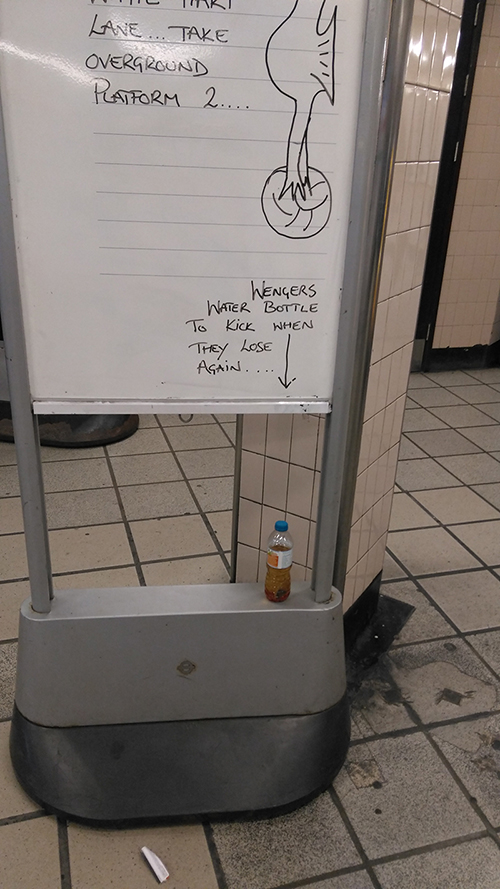 WHITE HART
LANE... TAKE
OVERGROUND
PLATFORM 2....
WENGERS
WATER BOTTLE
TO KICK WHEN
THEY LOSE
AGAIN....